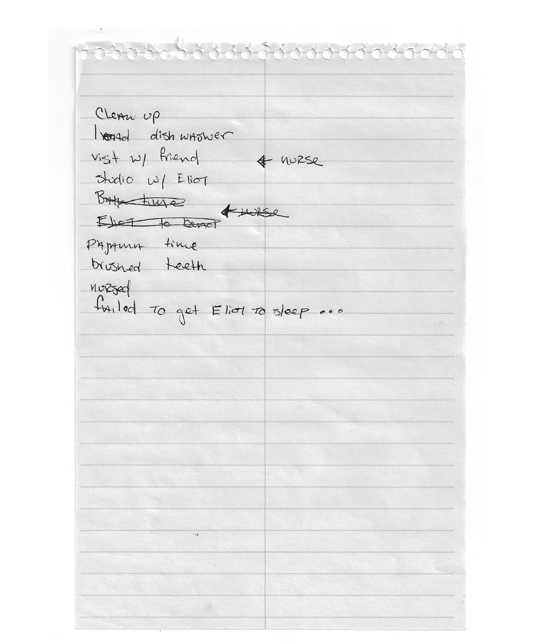 Clean up
load dishwasher
visit w/ friend ← nurse
studio w/ Eliot
Bath time
← nurse
Eliot to bed
pajama time
brushed teeth
nursed
failed to get Eliot to sleep ...